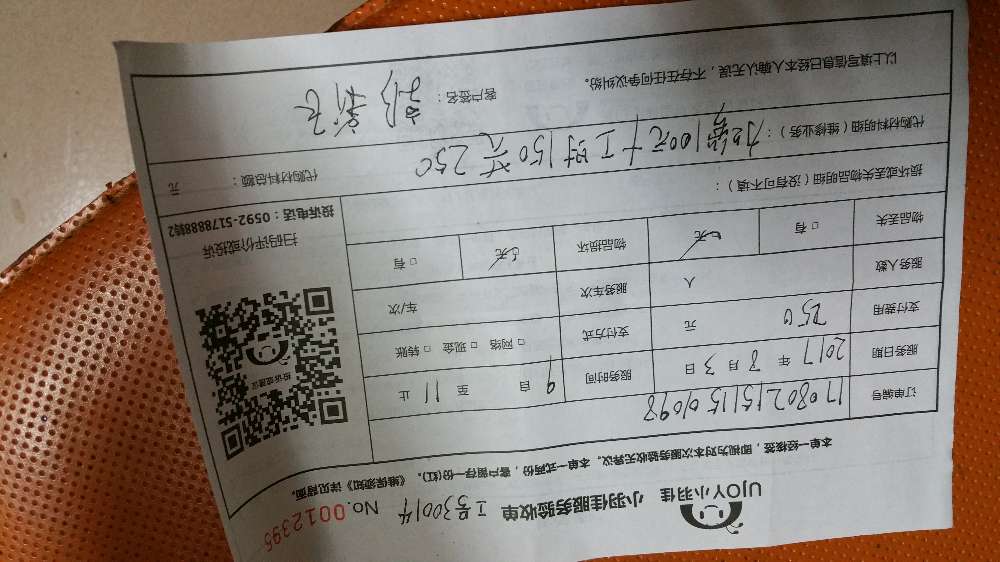 UJOY小羽佳 小羽佳服务验收单 工号3001件 No.0012395
本单一经核签，即视为对本次服务验收无异议。本单一式两份，客户留存一份(红)。《维保须知》详见背面。
订单编号 170802151150109
服务日期 2017年8月3日 服务时间 自9至11止
支付费用 250元 支付方式 □网络 □现金 □转账
服务人数 人 服务车次 车/次
物品丢失 □有 □无 物品损坏 □无 □有
损坏或丢失物品明细（没有可不填）：
投诉或建议
扫码评价或投诉
投诉电话：0592-5178888转2
代购材料明细（维修业务）：加铵100元+工时150共250
代购材料总额： 元
以上填写信息已经本人确认无误，不存在任何争议纠纷。
客户签名：